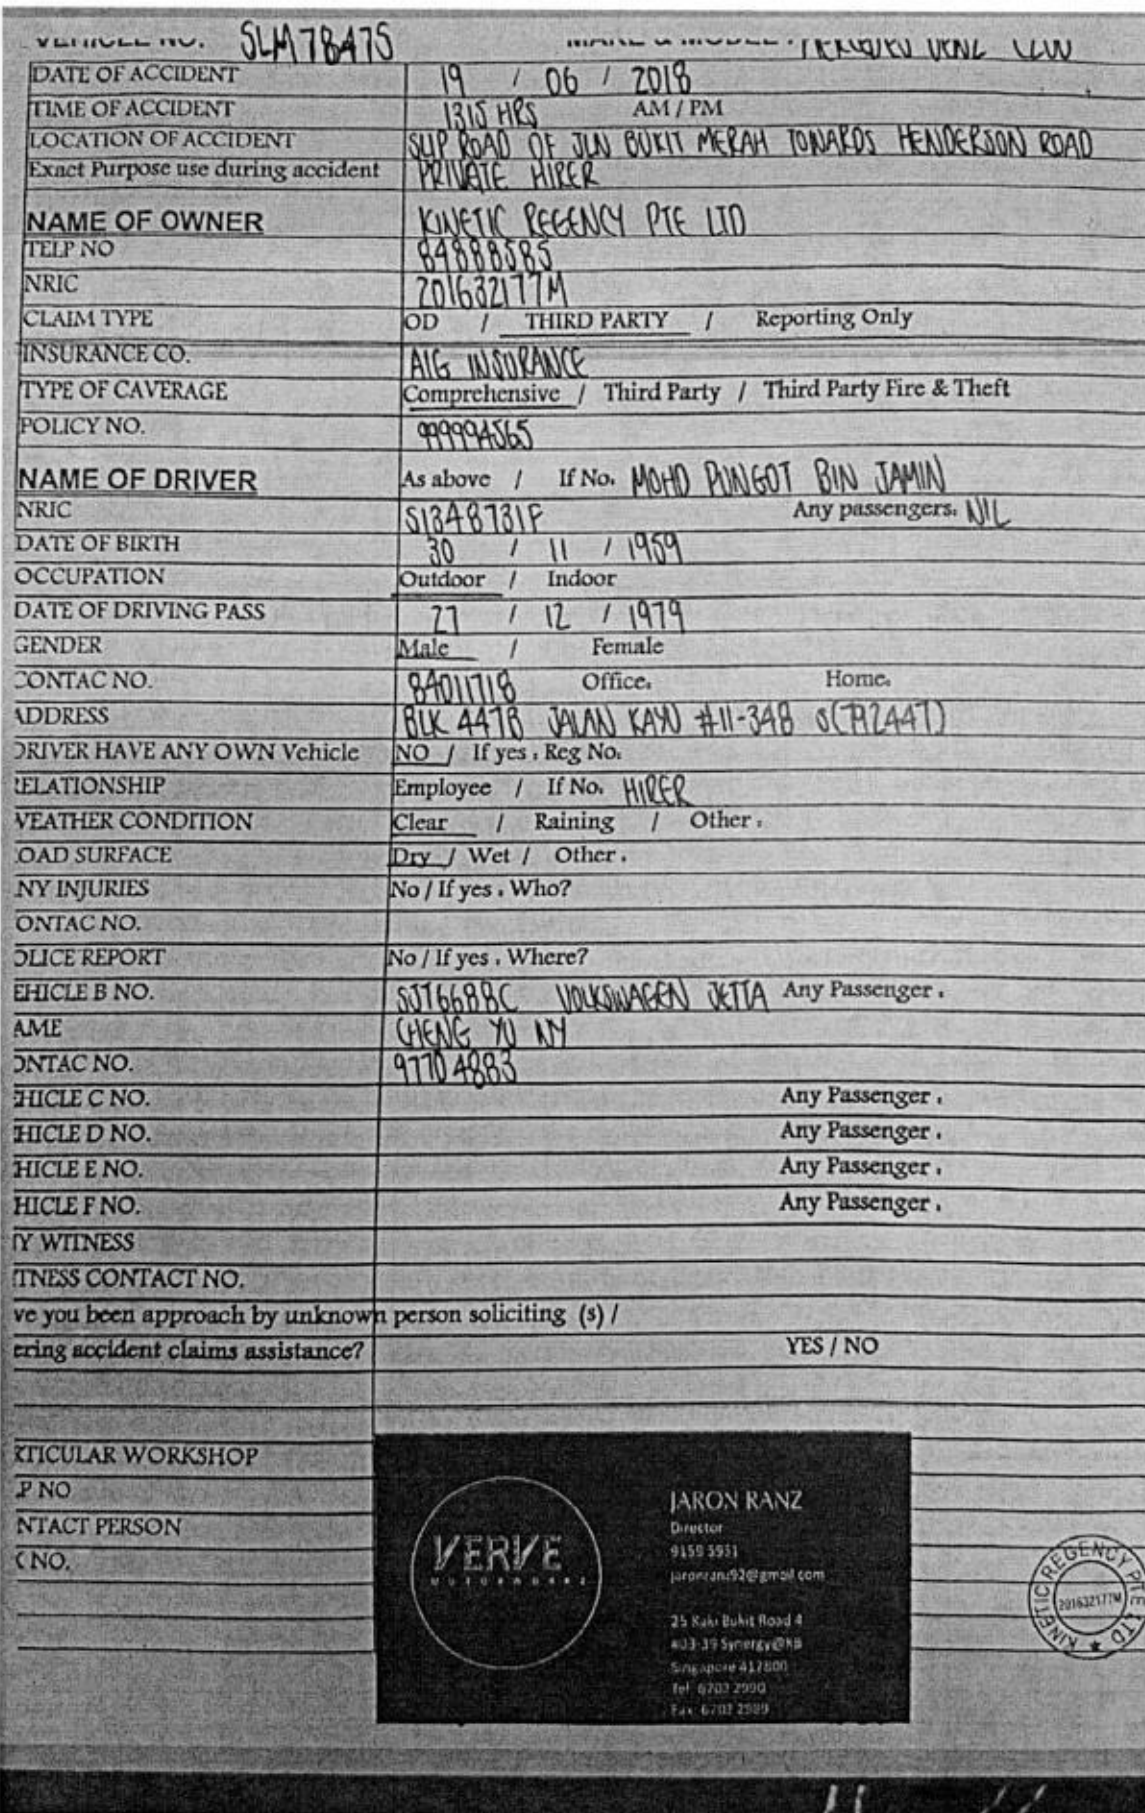 VEHICLE NO. SLM7847S MAKE & MODEL : MERCEDES BENZ
DATE OF ACCIDENT 19 / 06 / 2018
TIME OF ACCIDENT 1315 HRS AM / PM
LOCATION OF ACCIDENT SLIP ROAD OF JLN BUKIT MERAH TOWARDS HENDERSON ROAD
Exact Purpose use during accident PRIVATE HIRER
NAME OF OWNER KINETIC REGENCY PTE LTD
TELP NO 84888585
NRIC 201632177M
CLAIM TYPE OD / THIRD PARTY / Reporting Only
INSURANCE CO. AIG INSURANCE
TYPE OF CAVERAGE Comprehensive / Third Party / Third Party Fire & Theft
POLICY NO. 999994565
NAME OF DRIVER As above / If No. MOHD PUNGOT BIN JAMIN
NRIC S1348731F Any passengers. NIL
DATE OF BIRTH 30 / 11 / 1959
OCCUPATION Outdoor / Indoor
DATE OF DRIVING PASS 27 / 12 / 1979
GENDER Male / Female
CONTAC NO. 84011718 Office. Home.
ADDRESS BLK 447B JALAN KAYU #11-348 S(792447)
DRIVER HAVE ANY OWN Vehicle NO / If yes . Reg No.
RELATIONSHIP Employee / If No. HIRER
WEATHER CONDITION Clear / Raining / Other .
OAD SURFACE Dry / Wet / Other .
NY INJURIES No / If yes . Who?
ONTAC NO.
OLICE REPORT No / If yes . Where?
EHICLE B NO. SJT6688C VOLKSWAGEN JETTA Any Passenger .
AME CHENG YU
ONTAC NO. 9770 4883
EHICLE C NO. Any Passenger .
HICLE D NO. Any Passenger .
HICLE E NO. Any Passenger .
HICLE F NO. Any Passenger .
Y WITNESS
TNESS CONTACT NO.
ve you been approach by unknown person soliciting (s) /
ering accident claims assistance? YES / NO
RTICULAR WORKSHOP
P NO
NTACT PERSON
NO.
VERVE
MOTORWORKZ
JARON RANZ
Director
9159 5951
jaronranz92@gmail.com
25 Kaki Bukit Road 4
#03-39 Synergy@KB
Singapore 417800
Tel 6702 2990
Fax 6702 2989
KINETIC REGENCY PTE LTD
201632177M